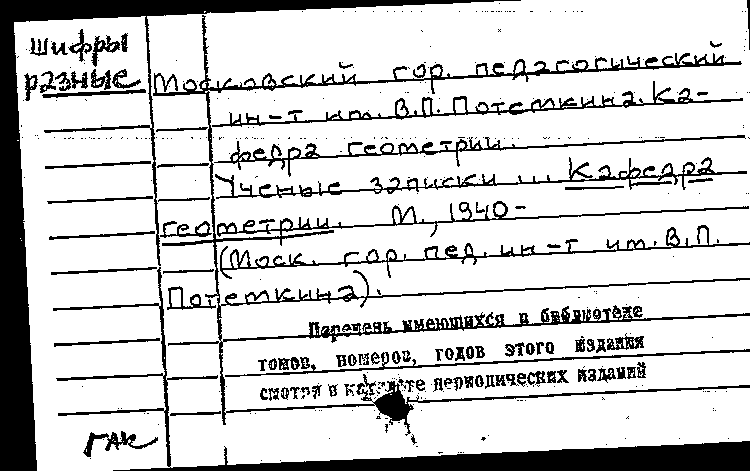 Шифры
разные
Московский гор. педагогический
ин-т им. В.П. Потемкина. Ка-
федра геометрии.
Ученые записки ... Кафедра
геометрии. М., 1940-
(Моск. гор. пед. ин-т им. В.П.
Потемкина).
Перечень имеющихся в библиотеке
томов, номеров, годов этого издания
смотри в каталоге периодических изданий
ГАК